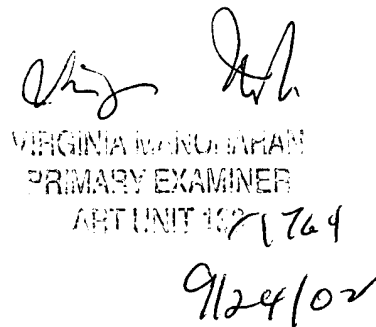 VIRGINIA MANOHARAN
PRIMARY EXAMINER
ART UNIT 1764
9/24/02